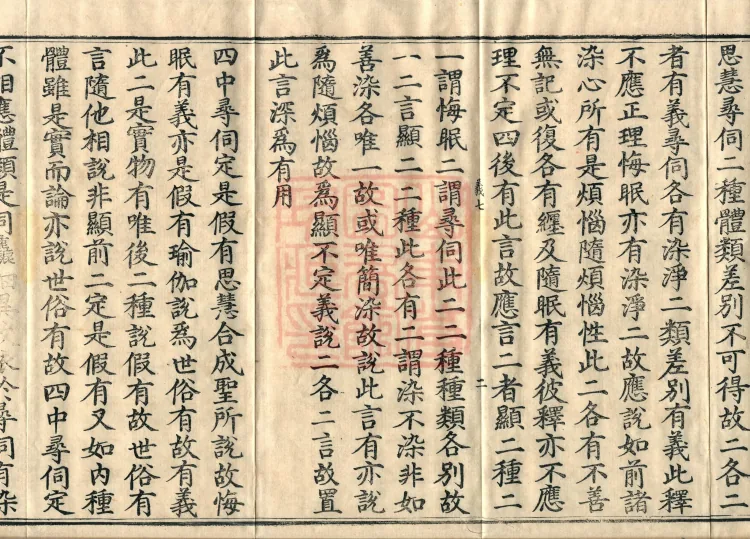 思慧尋伺二種體類差別不可得故二各二
者有義尋伺各有染淨二類差別有義此釋
不應正理悔眠亦有染淨二故應說如前諸
染心所有是煩惱隨煩惱性此二各有不善
無記或復各有纏及隨眠有義彼釋亦不應
理不定四後有此言故應言二者顯二種二
義七
二
一謂悔眠二謂尋伺此二二種種類各別故
一二言顯二二種此各有二謂染不染非如
善染各唯一故或唯簡染故說此言有亦說
為隨煩惱故為顯不定義說二各二言故置
此言深為有用
四中尋伺定是假有思慧合成聖所說故悔
眠有義亦是假有瑜伽說為世俗有故有義
此二是實物有唯後二種說假有故世俗有
言隨他相說非顯前二定是假有又如內種
體雖是實而論亦說世俗有故四中尋伺定
不相應體類是同
尋伺有染